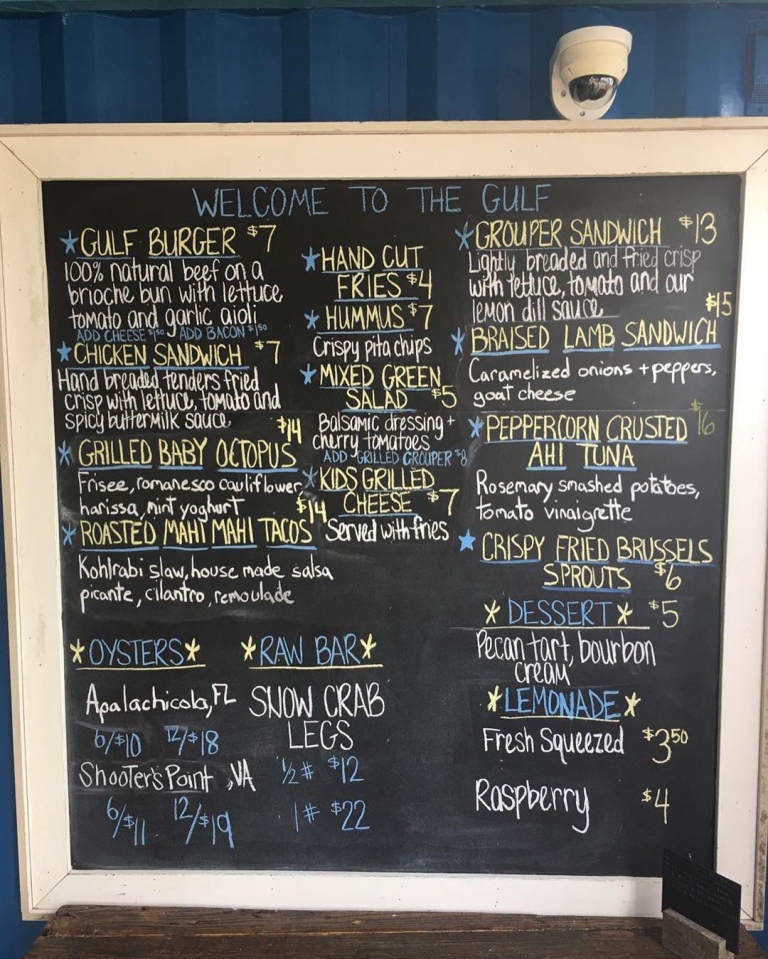 WELCOME TO THE GULF
GULF BURGER $7
100% natural beef on a
brioche bun with lettuce,
tomato and garlic aioli
ADD CHEESE $1.50 ADD BACON $1.50
CHICKEN SANDWICH $7
Hand breaded tenders fried
crisp with lettuce, tomato and
spicy buttermilk sauce
$14
GRILLED BABY OCTOPUS
Frisee, romanesco cauliflower,
harissa, mint yoghurt
$14
ROASTED MAHI MAHI TACOS
Kohlrabi slaw, house made salsa
picante, cilantro, remoulade
*OYSTERS*
Apalachicola, FL
6/$10 12/$18
Shooter's Point, VA
6/$11 12/$19
HAND CUT
FRIES $4
HUMMUS $7
Crispy pita chips
MIXED GREEN
SALAD $5
Balsamic dressing +
cherry tomatoes
ADD GRILLED GROUPER $8
KIDS GRILLED
CHEESE $7
Served with fries
*RAW BAR*
SNOW CRAB
LEGS
1/2# $12
1# $22
GROUPER SANDWICH $13
Lightly breaded and fried crisp
with lettuce, tomato and our
lemon dill sauce
$15
BRAISED LAMB SANDWICH
Caramelized onions + peppers,
goat cheese
$16
PEPPERCORN CRUSTED
AHI TUNA
Rosemary smashed potatoes,
tomato vinaigrette
CRISPY FRIED BRUSSELS
SPROUTS $6
*DESSERT* $5
Pecan tart, bourbon
cream
*LEMONADE*
Fresh Squeezed $3.50
Raspberry $4